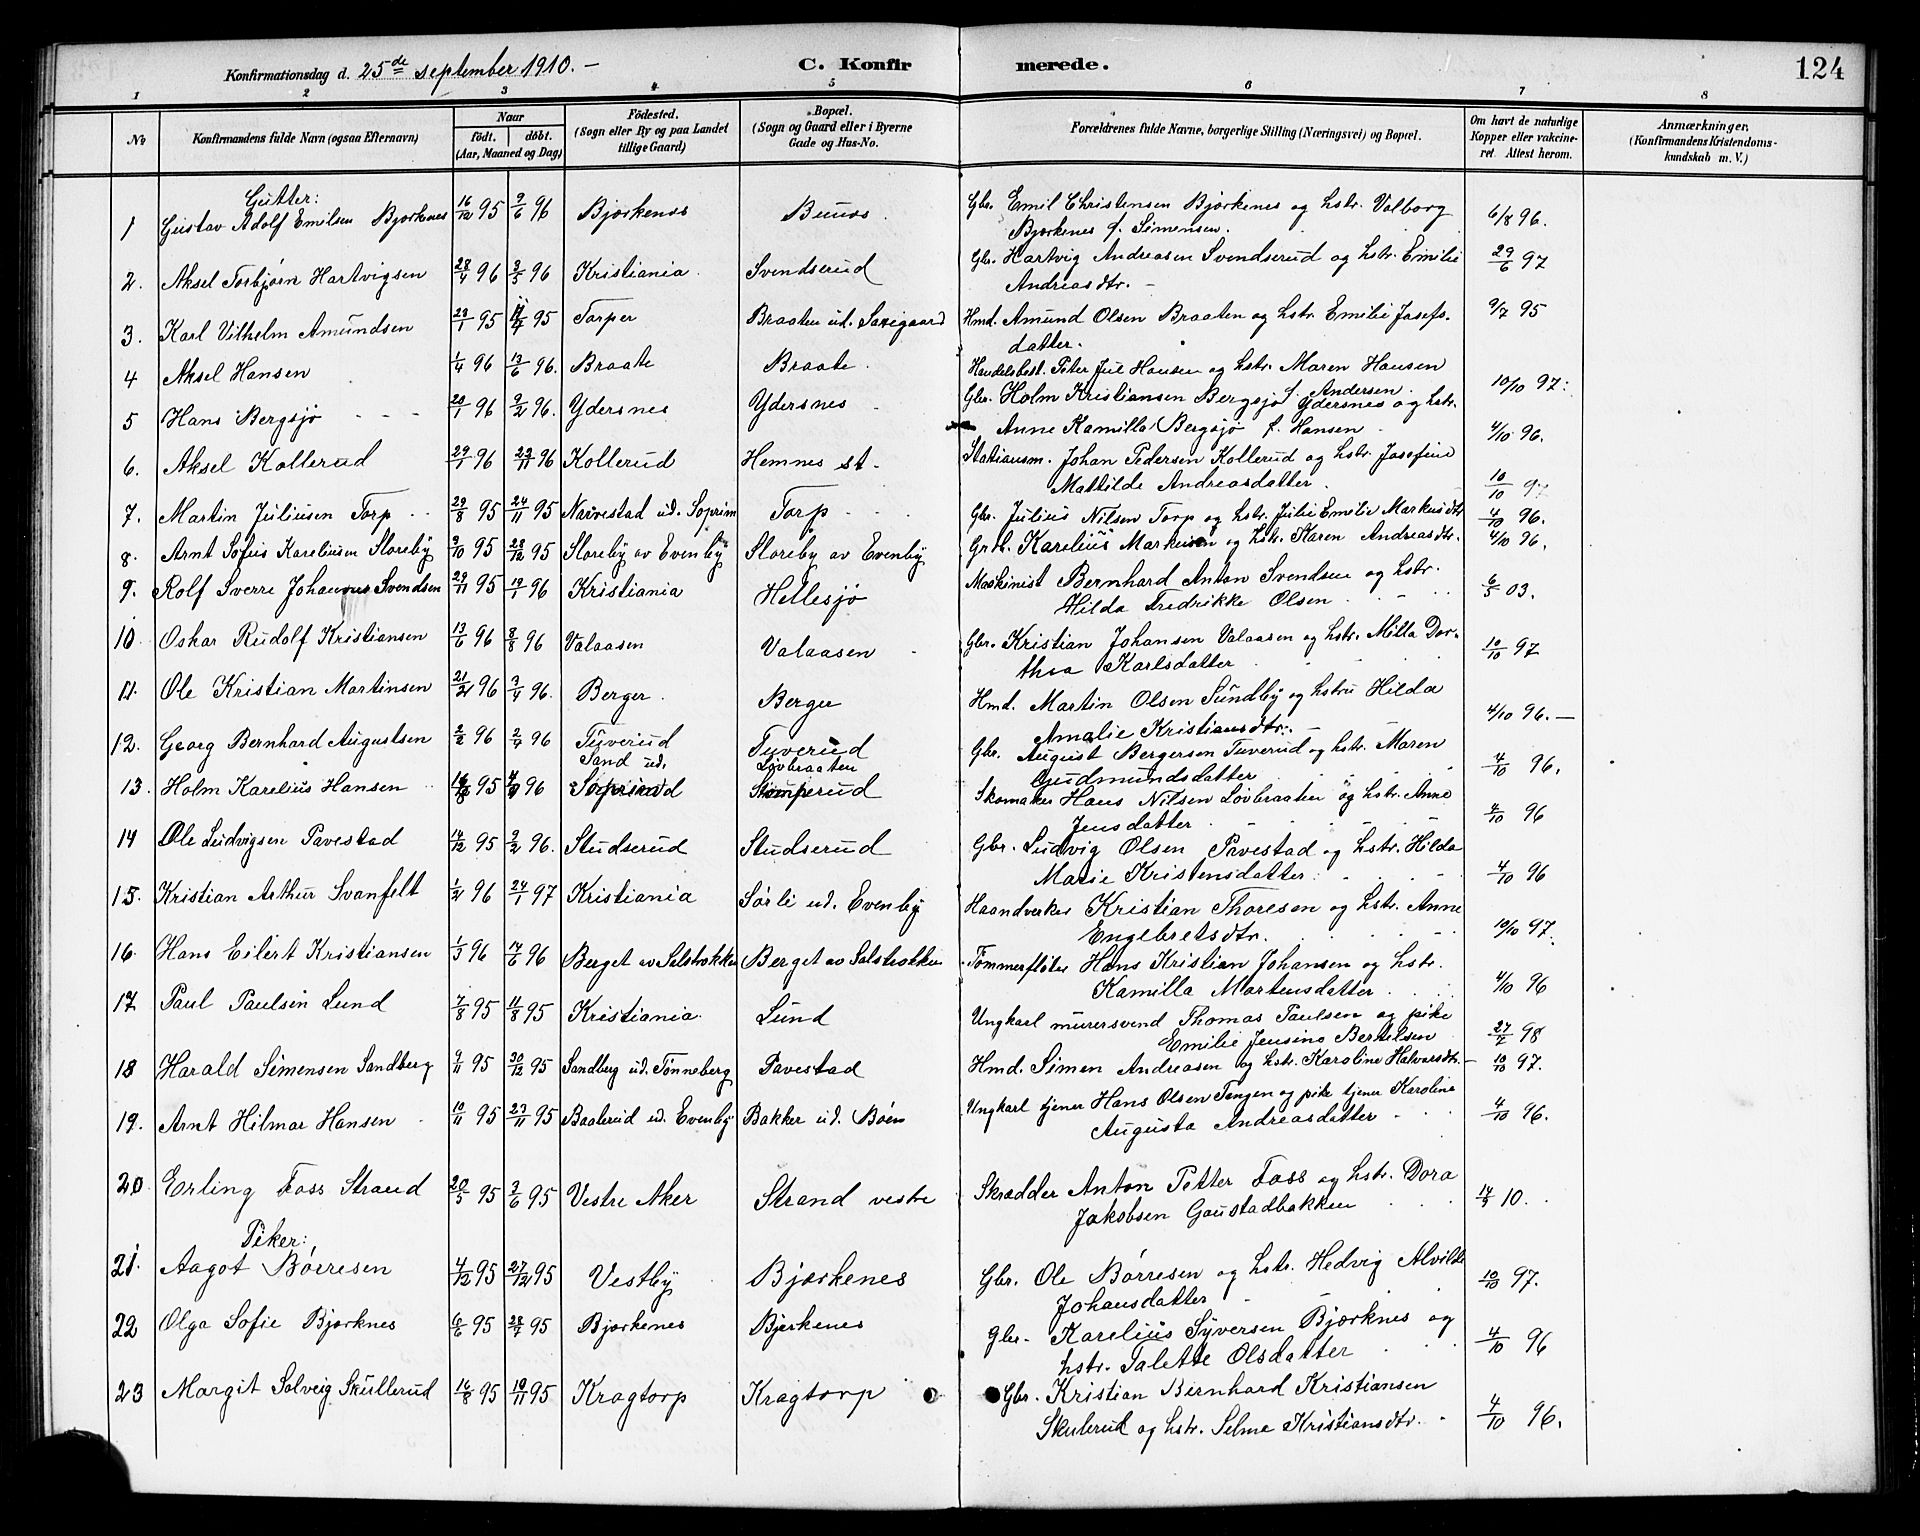 Konfirmationsdag d. 25de september 1910. –
C. Konfirmerede.
124
1 2 3 4 5 6 7 8
No
Konfirmandens fulde Navn (ogsaa Efternavn)
Naar
födt. döbt.
(Aar, Maaned og Dag)
Födested.
(Sogn eller By og paa Landet
tillige Gaard)
Bopæl.
(Sogn og Gaard eller i Byerne
Gade og Hus-No.
Forældrenes fulde Navne, borgerlige Stilling (Næringsvei) og Bopæl.
Om havt de naturlige
Kopper eller vakcine-
ret. Attest herom.
Anmærkninger,
(Konfirmandens Kristendoms-
kundskab m. V.)
Gutter:
1 Gustav Adolf Emilsen Bjørkenes 16/12 95 9/6 96 Bjørkenes Gbr. Emil Christensen Bjørkenes og hstr. Valborg
Bjørkenes f. Simensen. 6/8 96.
2. Aksel Torbjørn Hartvigsen 28/4 96 3/5 96 Kristiania. Svendserud Gbr. Hartvig Andreasen Svendserud og hstr. Emilie
Andreasdtr. – 29/6 97
3. Karl Vilhelm Amundsen 23/1 95 95 Torper Braaten ud. Hmd. Amund Olsen Braaten og hstr. Emilie Josefs-
datter. 9/7 95
4 Aksel Hansen 1/4 96 13/6 96. Braate Braate. Handelsbest. Peter Jul Hansen og hstr. Maren Hansen
f. Andersen. 10/10 97.
5 Hans Bergsjø 20/1 96 9/2 96. Ydersnes Ydersnes Gbr. Holm Kristiansen Bergsjø Ydersnes og hstr.
Anne Kamilla Bergsjø f. Hansen 4/10 96.
6. Aksel Kollerud 29/1 96 29/11 96 Kollerud Hemnes st. Stationsm. Johan Pedersen Kollerud og hstr. Josefine
Mathilde Andreasdatter 10/10 97
7. Martin Juliusen Torp 29/8 95 24/11 95 Narvestad ud. Soprim Torp Gbr. Julius Nilsen Torp og hstr. Julie Emilie Markusdtr 4/10 96.
8. Arnt Sofus Kareliusen Sloreby 9/10 95 28/12 95 Sloreby av Evenby Sloreby av Evenby Grbr. Karelius Markusen og hstr. Karen Andreasdtr. 4/10 96.
9. Rolf Sverre Johannes Svendsen 29/11 95 19/1 96 Kristiania Hellesjø Maskinist Bernhard Anton Svendsen og hstr.
Hilda Fredrikke Olsen. 6/5 03.
10. Oskar Rudolf Kristiansen 13/6 96 8/8 96 Valaasen Valaasen Gbr. Kristian Johansen Valaasen og hstr. Milla Dor-
thea Karlsdatter 10/10 97
11. Ole Kristian Martinsen 21/2 96 3/4 96. Berger. Berger Hmd. Martin Olsen Sundby og hstru Hilda
Amalie Kristiansdtr. – 4/10 96. –
12. Georg Bernhard Augustsen 2/2 96 2/4 96 Tuverud Tuverud Gbr. August Bergersen Tuverud og hstr. Maren
Gudmundsdatter 4/10 96.
13. Holm Karelius Hansen 95 96 Sand ud. Løvbraaten Skomaker Hans Nilsen Løvbraaten og hstr. Anne
Jensdatter 4/10 96
14 Ole Ludvigsen Pavestad 14/12 95 9/2 96. Studserud Studserud Gbr. Ludvig Olsen Pavestad og hstr. Hilda
Marie Kristensdatter. 4/10 96
15. Kristian Arthur Svanfelt 1/2 96 24/1 97 Kristiania Sørli ud. Evenby Haandverker Kristian Thoresen og hstr. Anne
Engebretsdtr. 10/10 97.
16. Hans Eilert Kristiansen 1/3 96 14/6 96 Berget av Selstrokken Berget av Solstrokken Tømmerfløter Hans Kristian Johansen og hstr.
Kamilla Martensdatter 4/10 96
17 Paul Paulsen Lund 7/8 95 11/8 95 Kristiania. Lund Ungkarl murersvend Thomas Paulsen og pike
Emilie Jensine Bertelsen 27/2 98
18 Harald Simensen Sandberg 9/11 95 30/12 95 Sandberg ud. Tønneberg Pavestad Hmd. Simen Andreasen og hstr. Karoline Halvorsdtr. – 10/10 97.
19. Arnt Hilmar Hansen 10/11 95 23/11 95 Baalerud ud. Evenby Bakker ud. Bøen Ungkarl tjener Hans Olsen Tangen og pike tjener Karoline
Augusta Andreasdatter 4/10 96.
20 Erling Foss Strand 20/5 95 3/6 95 Vestre Aker Strand vestre Skrædder Anton Petter Foss og hstr. Dora
Jakobsen Gaustadbakken 14/9 10.
Piker:
21. Aagot Børresen 4/12 95 27/12 95 Vestby Bjørkenes Gbr. Ole Børresen og hstr. Hedvig Alvilde
Johansdatter 10/10 97.
22 Olga Sofie Bjørknes 6/6 95 28/7 95 Bjørkenes Bjerkenes Gbr. Karelius Syversen Bjørknes og
hstr. Talette Olsdatter 4/10 96
23 Margit Solveig Skullerud 16/8 95 19/11 95 Kragtorp Kragtorp Gbr. Kristian Bernhard Kristiansen
Skulerud og hstr. Selma Kristiansdtr. 4/10 96.